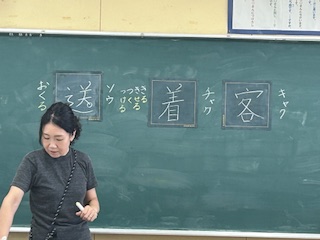 キャク
客
チャク
着
きる
きせる
つく
つける
ソウ
送
おくる